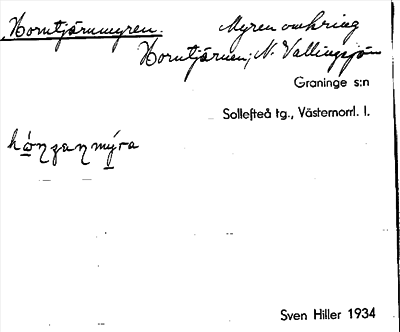 Horntjärnmyren. Myren omkring
Horntjärnen, N. Vallingsjön
Graninge s:n
Sollefteå tg., Västernorrl. l.
hóŋʒaŋmýra
Sven Hiller 1934